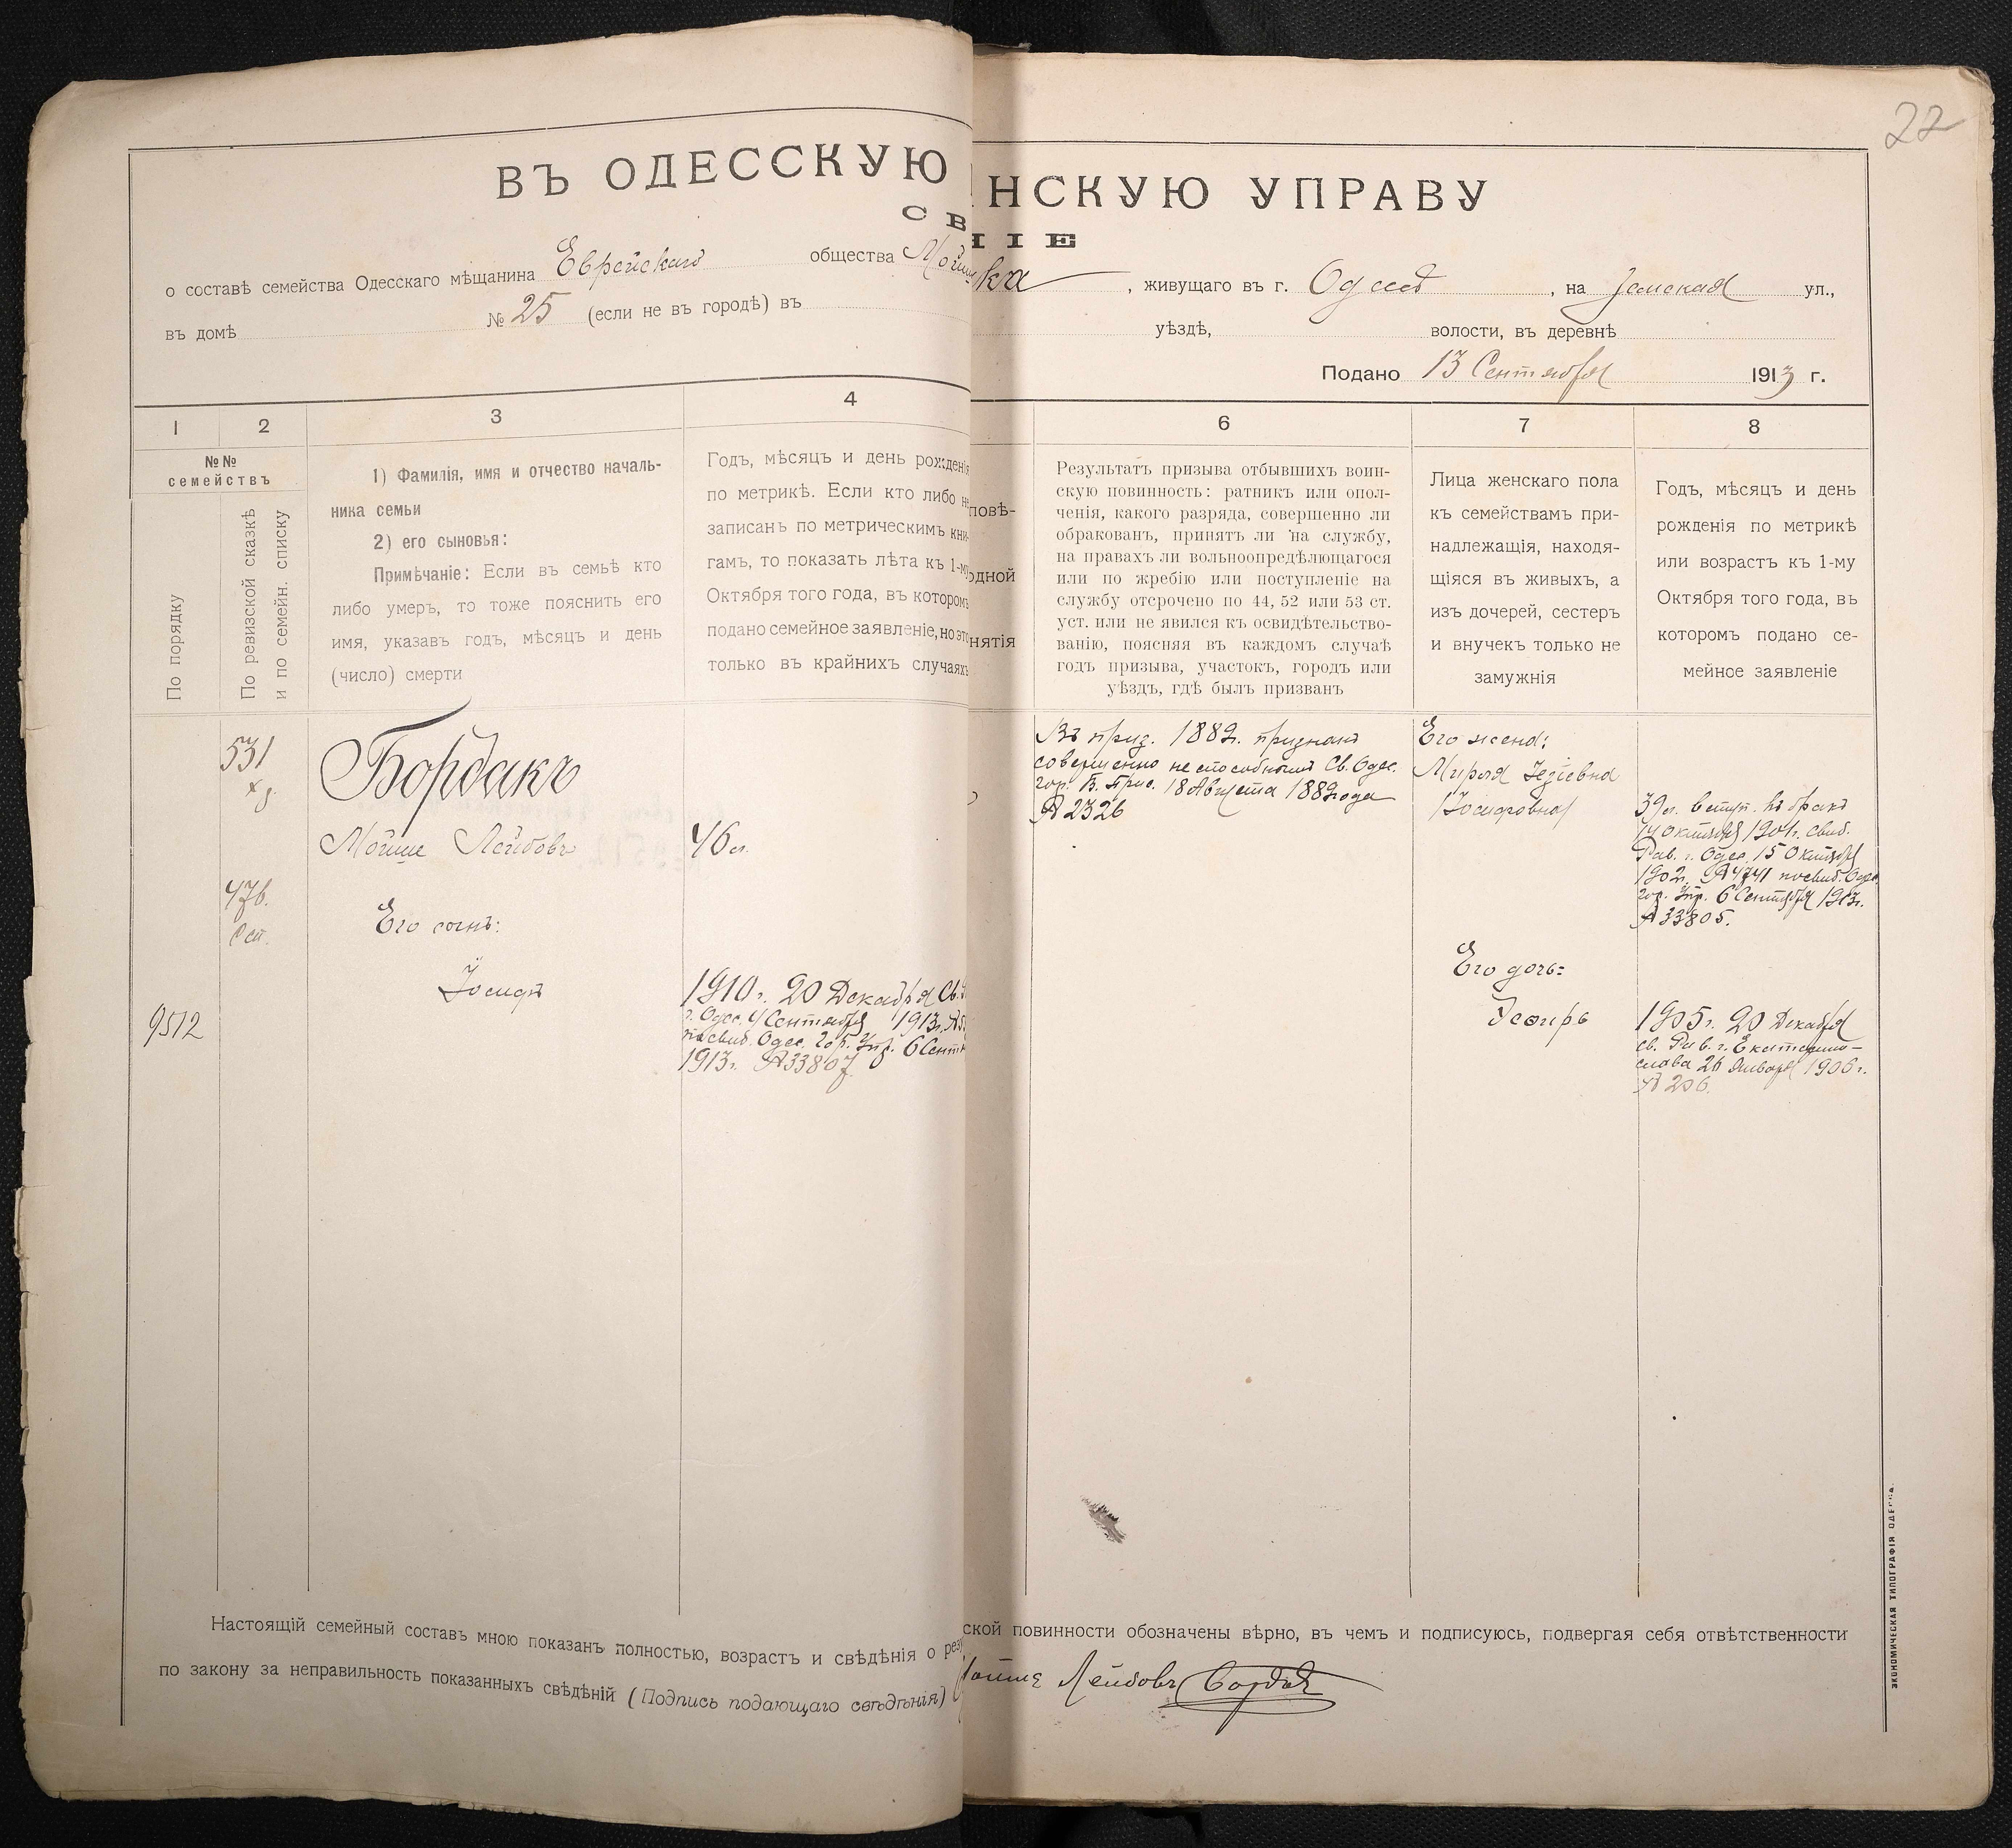 22
ВЪ ОДЕССКУЮ
НСКУЮ УПРАВУ
СВ
НІЕ
о составѣ семейства Одесскаго мѣщанина Еврейскаго общества
, живущаго въ г. Одессѣ , на Земская ул.,
въ домѣ № 25 (если не въ городѣ) въ
уѣздѣ, волости, въ деревнѣ
Подано 13 Сентября 1913 г.
1
2
3
4
6
7
8
№№
семействъ
По порядку
По ревизской сказкѣ
и по семейн. списку
1) Фамилія, имя и отчество началь-
ника семьи
2) его сыновья:
Примѣчаніе: Если въ семьѣ кто
либо умеръ, то тоже пояснить его
имя, указавъ годъ, мѣсяцъ и день
(число) смерти
Годъ, мѣсяцъ и день рожденія
по метрикѣ. Если кто либо не
записанъ по метрическимъ кни-
гамъ, то показать лѣта къ 1-му
Октября того года, въ которомъ
подано семейное заявленіе, но это
только въ крайнихъ случаяхъ
повѣ-
одной
нятія
Результатъ призыва отбывшихъ воин-
скую повинность: ратникъ или опол-
ченія, какого разряда, совершенно ли
обракованъ, принятъ ли на службу,
на правахъ ли вольноопредѣляющагося
или по жребію или поступленіе на
службу отсрочено по 44, 52 или 53 ст.
уст. или не явился къ освидѣтельство-
ванію, поясняя въ каждомъ случаѣ
годъ призыва, участокъ, городъ или
уѣздъ, гдѣ былъ призванъ
Лица женскаго пола
къ семействамъ при-
надлежащія, находя-
щіяся въ живыхъ, а
изъ дочерей, сестеръ
и внучекъ только не
замужнія
Годъ, мѣсяцъ и день
рожденія по метрикѣ
или возрастъ къ 1-му
Октября того года, въ
которомъ подано се-
мейное заявленіе
531
Бордакъ
Мойше Лейбовъ
46 л.
Въ приз. 1889г. признанъ
совершенно неспособнымъ Св. Одес.
гор. В. Прис. 18 Августа 1889 года
№ 2326
Его жена:
Іосифовна
39 л. вступ. въ бракъ
14 Октября 1901г. свид.
Рав. г. Одес. 15 Октября
1902г. № 4741 посвид. Одес.
гор. Упр. 6 Сентября 1913г.
№ 33805.
Его сынъ:
Іосифъ
1910 г. 20 Декабря Св.
г. Одес. 4 Сентября 1913г.
посвид. Одес. гор. Упр. 6 Сентя
1913г. № 33807
9512
Его дочь:
Эсфирь
1905г. 20 Декабря
св. Рав. г. Екатерино-
слава 26 Января 1906 г.
№ 206.
Настоящій семейный составъ мною показанъ полностью, возрастъ и свѣдѣнія о рез
ской повинности обозначены вѣрно, въ чемъ и подписуюсь, подвергая себя отвѣтственности
по закону за неправильность показанныхъ свѣдѣній (Подпись подающаго свѣдѣнія)
Лейбовъ Бордакъ
ЭКОНОМИЧЕСКАЯ ТИПОГРАФІЯ ОДЕССА.